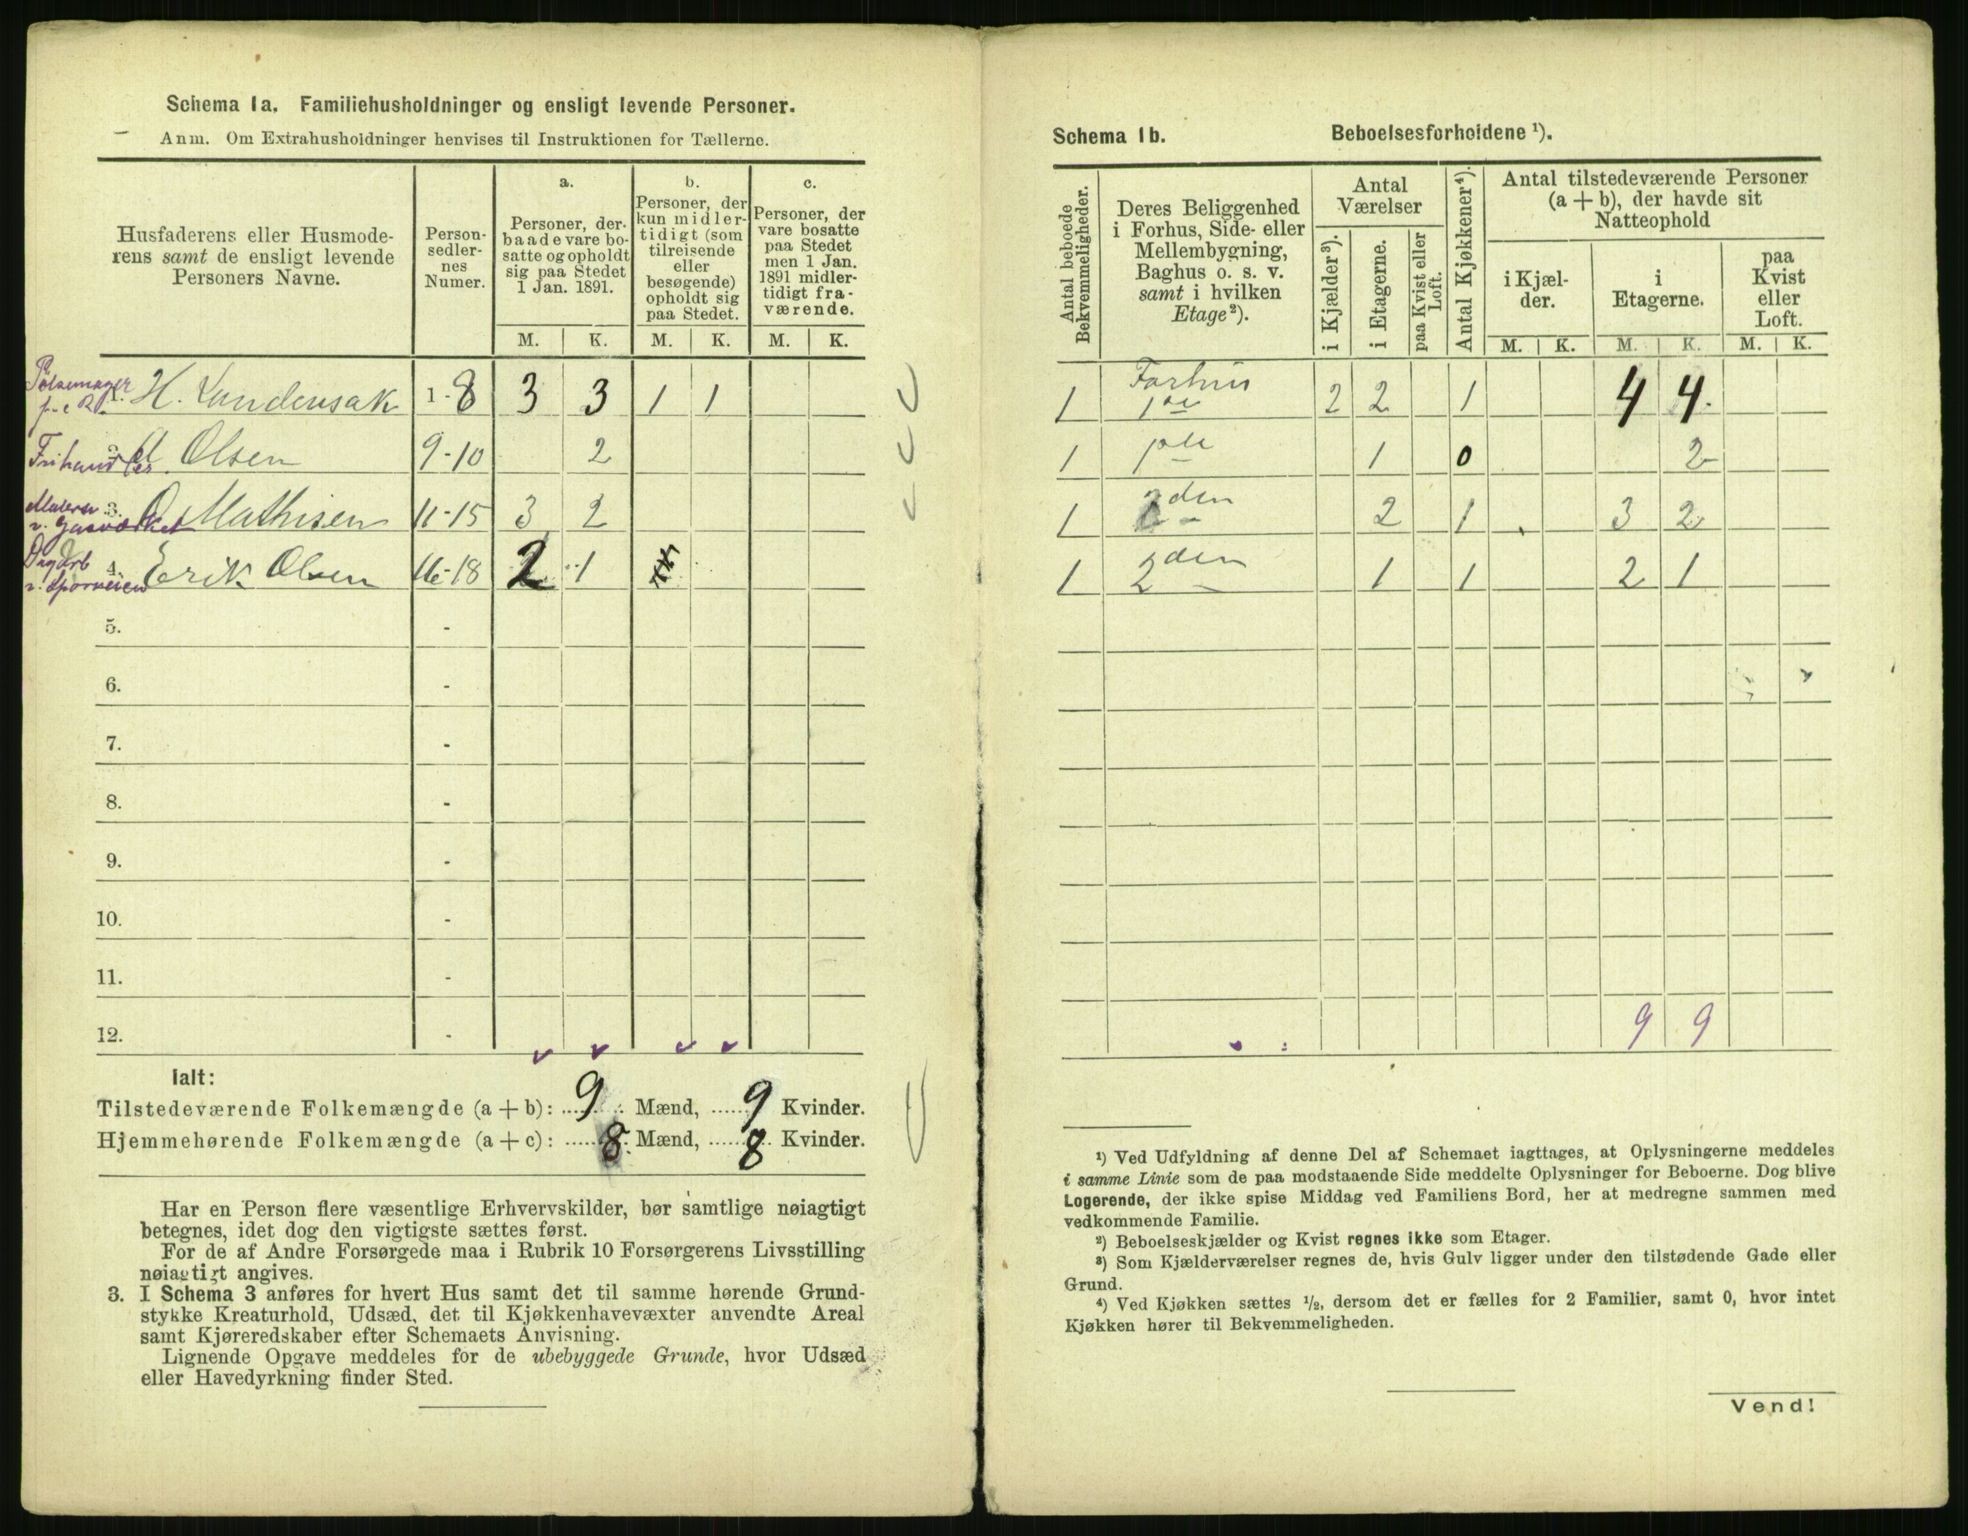 Schema 1a. Familiehusholdninger og ensligt levende Personer.
Anm. Om Extrahusholdninger henvises til Instruktionen for Tællerne.
Husfaderens eller Husmode-
rens samt de ensligt levende
Personers Navne.
Person-
sedler-
nes
Numer.
a.
Personer, der
baade vare bo-
satte og opholdt
sig paa Stedet
1 Jan. 1891.
b.
Personer, der
kun midler-
tidigt (som
tilreisende
eller
besøgende)
opholdt sig
paa Stedet.
c.
Personer, der
vare bosatte
paa Stedet
men 1 Jan.
1891 midler-
tidigt fra-
værende.
M. K. M. K. M. K.
Pølsemager
1. H. Lundensak 1-8 3 3 1 1
Olsen 9-10 2
3. O. Mathisen 11-15 3 2
v. Gasværket
4. Erik Olsen 16-18 2 1
v. Sporveien
5. -
6. -
7. -
8. -
9. -
10. -
11. -
12. -
Ialt:
Tilstedeværende Folkemængde (a + b): 9 Mænd, 9 Kvinder.
Hjemmehørende Folkemængde (a + c): 8 Mænd, 8 Kvinder.
Har en Person flere væsentlige Erhvervskilder, bør samtlige nøiagtigt
betegnes, idet dog den vigtigste sættes først.
For de af Andre Forsørgede maa i Rubrik 10 Forsørgerens Livsstilling
nøiagtigt angives.
3. I Schema 3 anføres for hvert Hus samt det til samme hørende Grund-
stykke Kreaturhold, Udsæd, det til Kjøkkenhavevæxter anvendte Areal
samt Kjøreredskaber efter Schemaets Anvisning.
Lignende Opgave meddeles for de ubebyggede Grunde, hvor Udsæd
eller Havedyrkning finder Sted.
Schema 1b. Beboelsesforholdene ¹).
Antal beboede
Bekvemmeligheder.
Deres Beliggenhed
i Forhus, Side- eller
Mellembygning,
Baghus o. s. v.
samt i hvilken
Etage²).
Antal
Værelser
i Kjælder³).
i Etagerne.
paa Kvist eller
Loft.
Antal Kjøkkener⁴).
Antal tilstedeværende Personer
(a + b), der havde sit
Natteophold
i Kjæl-
der.
i
Etagerne.
paa
Kvist
eller
Loft.
M. K. M. K. M. K.
Forhus
1 1ste 2 2 1 4 4
1 1ste 1 0 2
1 2den 2 1 3 2
1 2den 1 1 2 1
9 9
¹) Ved Udfyldning af denne Del af Schemaet iagttages, at Oplysningerne meddeles
i samme Linie som de paa modstaaende Side meddelte Oplysninger for Beboerne. Dog blive
Logerende, der ikke spise Middag ved Familiens Bord, her at medregne sammen med
vedkommende Familie.
²) Beboelseskjælder og Kvist regnes ikke som Etager.
³) Som Kjælderværelser regnes de, hvis Gulv ligger under den tilstødende Gade eller
Grund.
⁴) Ved Kjøkken sættes ½, dersom det er fælles for 2 Familier, samt 0, hvor intet
Kjøkken hører til Bekvemmeligheden.
Vend!